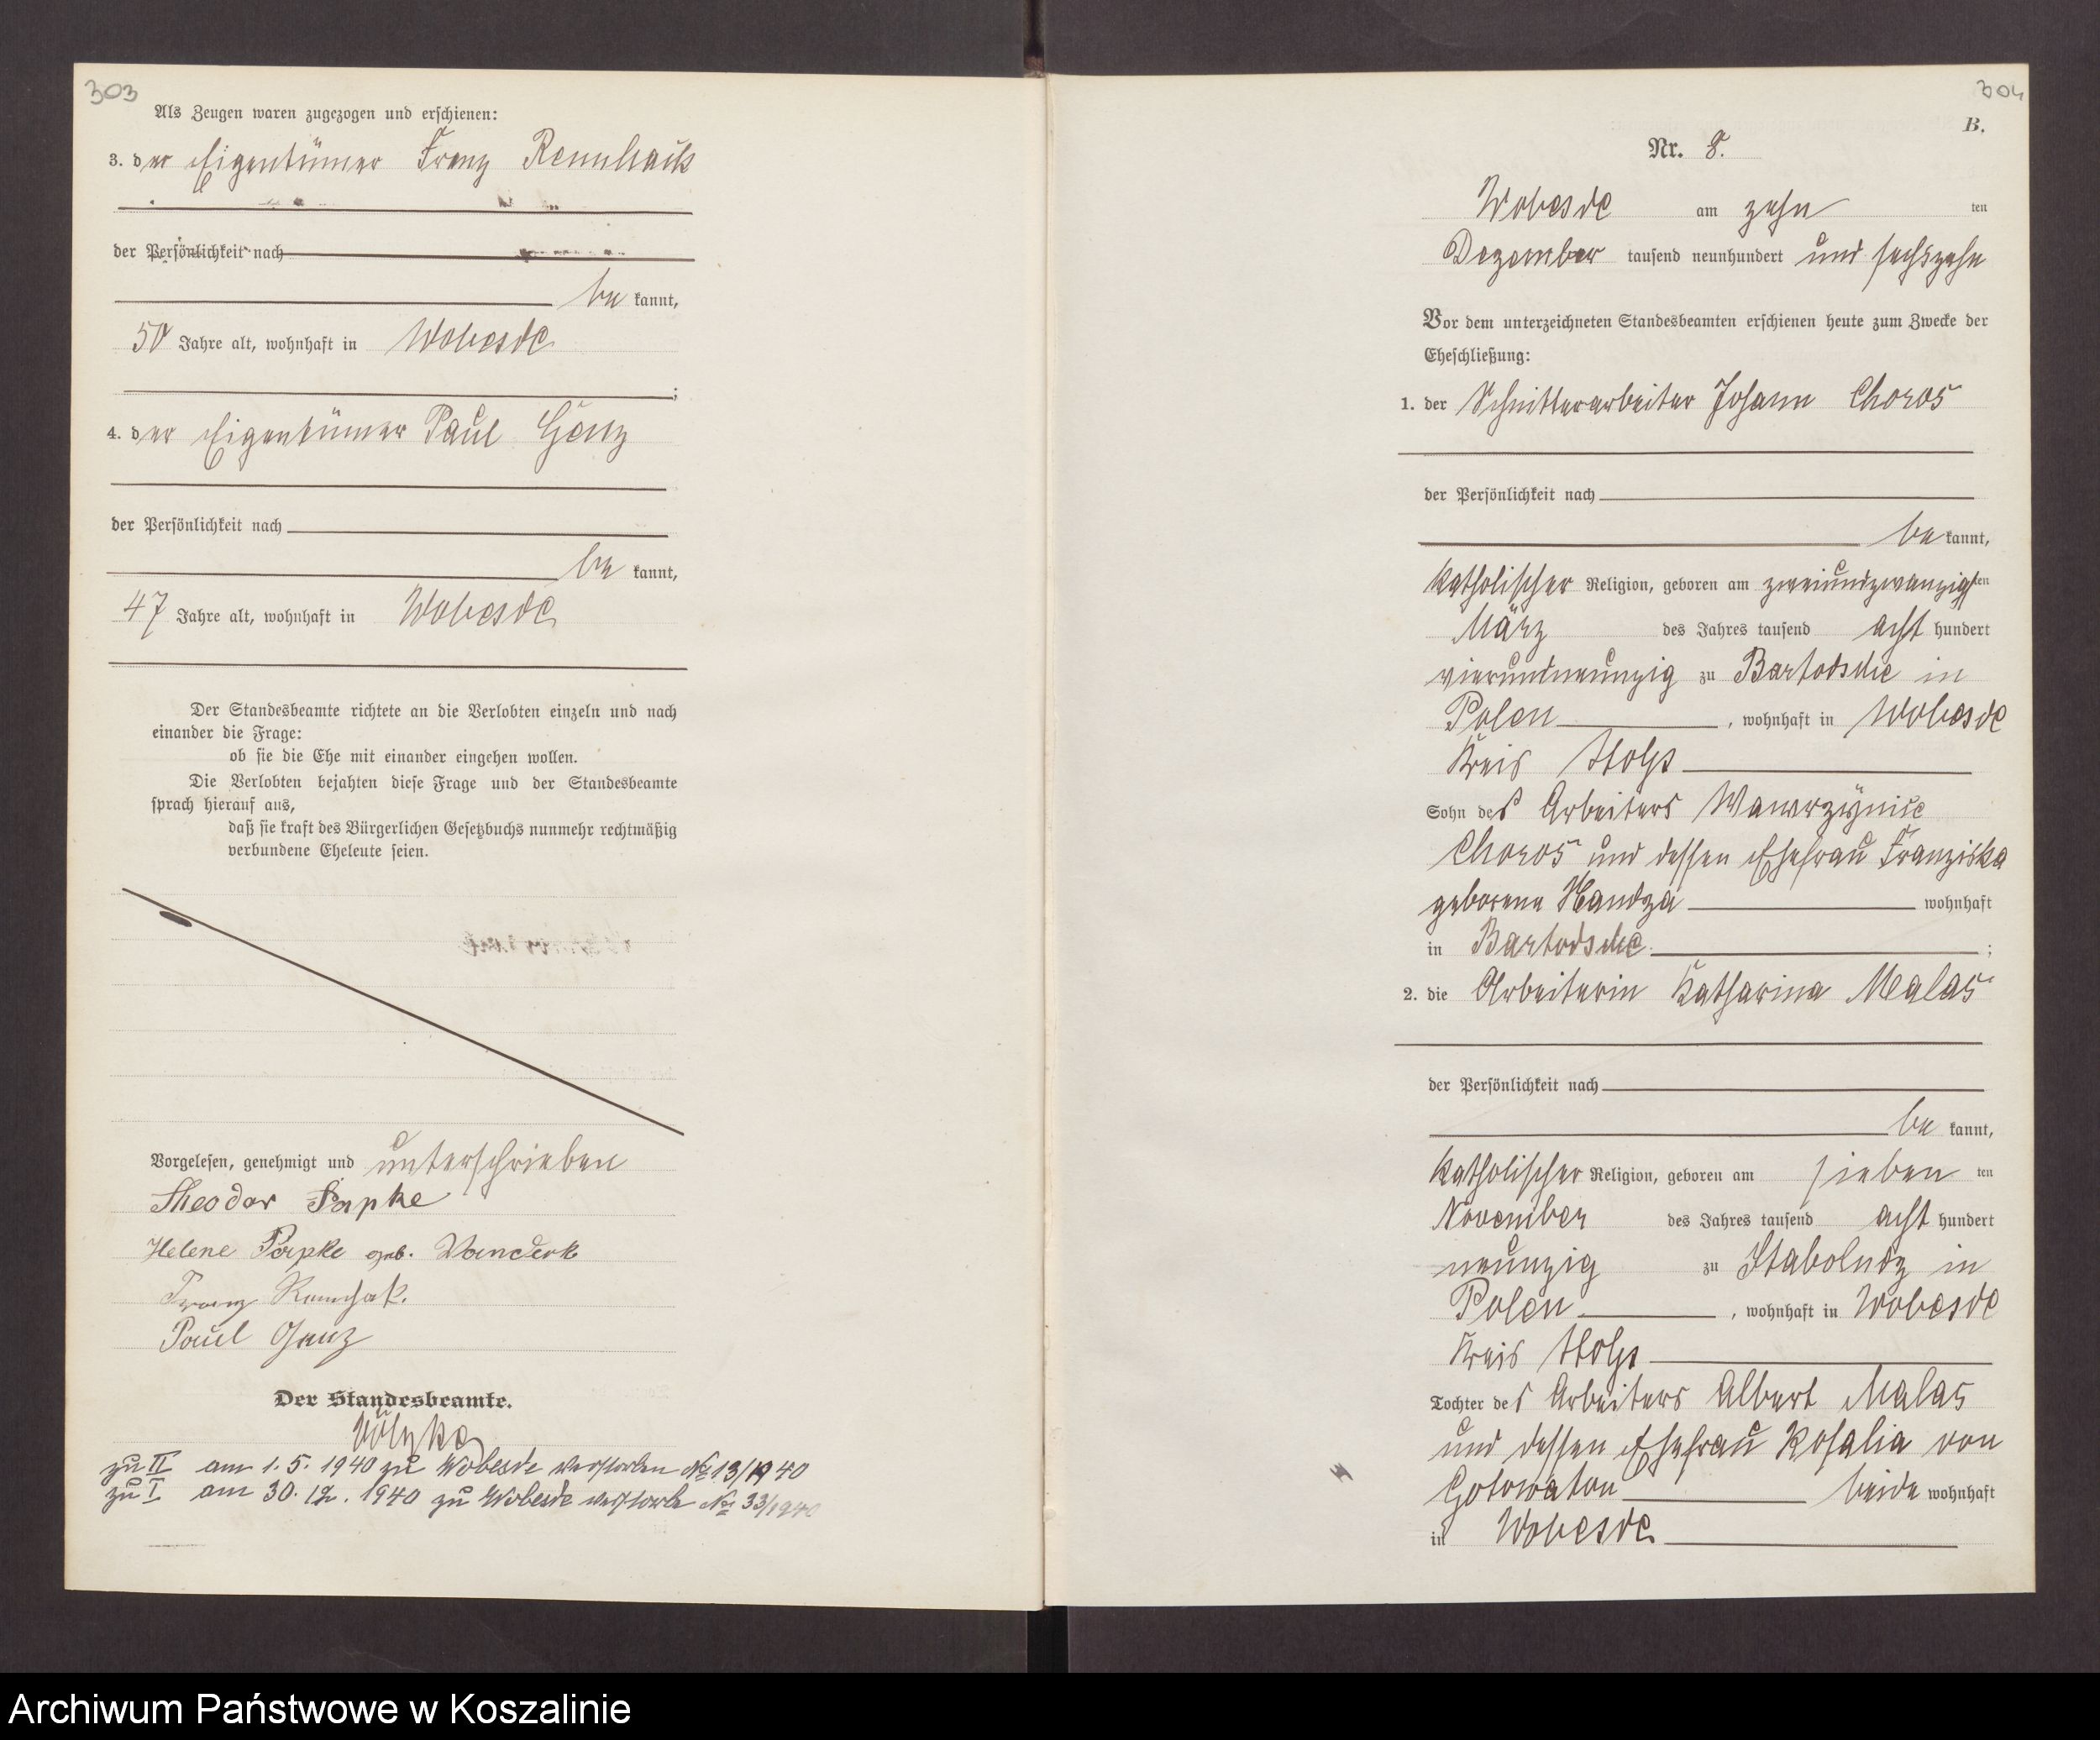 303
Als Zeugen waren zugezogen und erschienen:
3. der Eigentümer Franz
der Persönlichkeit nach
be kannt,
50 Jahre alt, wohnhaft in Wobesde
;
4. der Eigentümer Paul Genz
der Persönlichkeit nach
be kannt,
47 Jahre alt, wohnhaft in Wobesde
Der Standesbeamte richtete an die Verlobten einzeln und nach
einander die Frage:
ob sie die Ehe mit einander eingehen wollen.
Die Verlobten bejahten diese Frage und der Standesbeamte
sprach hierauf aus,
daß sie kraft des Bürgerlichen Gesetzbuchs nunmehr rechtmäßig
verbundene Eheleute seien.
Vorgelesen, genehmigt und unterschrieben
Theodor Papke
Helene Papke geb.
Franz
Paul Genz
Der Standesbeamte.
zu II am 1. 5. 1940 zu Wobesde verstorben No 13/1940
zu I am 30. 12. 1940 zu Wobesde verstorben No 33/1940
304
B.
Nr. 8.
Wobesde am zehn ten
Dezember tausend neunhundert und sechszehn
Vor dem unterzeichneten Standesbeamten erschienen heute zum Zwecke der
Eheschließung:
1. der Schnitterarbeiter Johann Choros
der Persönlichkeit nach
be kannt,
katholischer Religion, geboren am zweiundzwanzigsten
März des Jahres tausend acht hundert
vierundneunzig zu Bartodsche in
Polen, wohnhaft in Wobesde
Kreis Stolp
Sohn des Arbeiters
Choros und dessen Ehefrau Franziska
geborene Handza wohnhaft
in Bartodsche ;
2. die Arbeiterin Katharina Malas
der Persönlichkeit nach
be kannt,
katholischer Religion, geboren am sieben ten
November des Jahres tausend acht hundert
neunzig zu in
Polen, wohnhaft in Wobesde
Kreis Stolp
Tochter des Arbeiters Albert Malas
und dessen Ehefrau Rosalia von
beide wohnhaft
in Wobesde
Archiwum Państwowe w Koszalinie